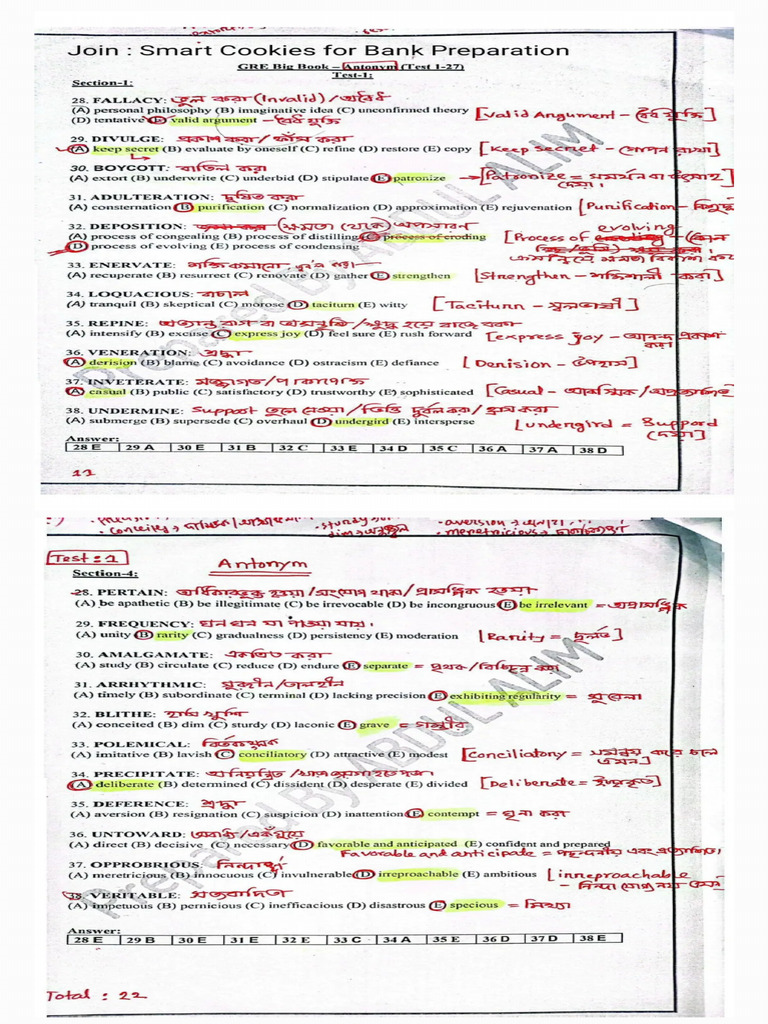 Join : Smart Cookies for Bank Preparation
GRE Big Book – Antonym (Test 1-27)
Test-1:
Section-1:
28. FALLACY: ভুল করা (Invalid) / অবৈধ
(A) personal philosophy (B) imaginative idea (C) unconfirmed theory
(D) tentative (E) valid argument – বৈধ যুক্তি [Valid Argument – বৈধ যুক্তি]
29. DIVULGE: প্রকাশ করা / ফাঁস করা
(A) keep secret (B) evaluate by oneself (C) refine (D) restore (E) copy [Keep secret – গোপন রাখা]
30. BOYCOTT: বাতিল করা
(A) extort (B) underwrite (C) underbid (D) stipulate (E) patronize → [Patronize = সমর্থন বা উৎসাহ দেয়া]
31. ADULTERATION: দূষিত করা
(A) consternation (B) purification (C) normalization (D) approximation (E) rejuvenation [Purification –
32. DEPOSITION: (ক্ষমতা থেকে) অপসারণ
(A) process of congealing (B) process of distilling (C) process of eroding [Process of evolving
(D) process of evolving (E) process of condensing
33. ENERVATE: শক্তি কমানো
(A) recuperate (B) resurrect (C) renovate (D) gather (E) strengthen [Strengthen – শক্তিশালী করা]
34. LOQUACIOUS: বাচাল
(A) tranquil (B) skeptical (C) morose (D) taciturn (E) witty [Taciturn – স্বল্পভাষী]
35. REPINE:
(A) intensify (B) excuse (C) express joy (D) feel sure (E) rush forward [express joy – আনন্দ প্রকাশ করা]
36. VENERATION: শ্রদ্ধা
(A) derision (B) blame (C) avoidance (D) ostracism (E) defiance [Derision – উপহাস]
37. INVETERATE:
(A) casual (B) public (C) satisfactory (D) trustworthy (E) sophisticated [Casual – আকস্মিক /
38. UNDERMINE: Support তুলে নেওয়া / ভিত্তি দুর্বল করা / হ্রাস করা
(A) submerge (B) supersede (C) overhaul (D) undergird (E) intersperse [undergird = Support দেয়া]
Answer:
28 E 29 A 30 E 31 B 32 C 33 E 34 D 35 C 36 A 37 A 38 D
11
Prepared By ABDUL ALIM
Test : 1
Antonym
Section-4:
28. PERTAIN: অধিকারভুক্ত হওয়া / সংযোগ থাকা / প্রাসঙ্গিক হওয়া
(A) be apathetic (B) be illegitimate (C) be irrevocable (D) be incongruous (E) be irrelevant = অপ্রাসঙ্গিক
29. FREQUENCY: ঘন ঘন যা পাওয়া যায়।
(A) unity (B) rarity (C) gradualness (D) persistency (E) moderation [Rarity = দুর্লভ]
30. AMALGAMATE: একত্রিত করা
(A) study (B) circulate (C) reduce (D) endure (E) separate = পৃথক / বিচ্ছিন্ন করা
31. ARRHYTHMIC: সুরহীন / তালহীন
(A) timely (B) subordinate (C) terminal (D) lacking precision (E) exhibiting regularity = সুরেলা
32. BLITHE: হাসি খুশি
(A) conceited (B) dim (C) sturdy (D) laconic (E) grave = গম্ভীর
33. POLEMICAL: বিতর্কমূলক
(A) imitative (B) lavish (C) conciliatory (D) attractive (E) modest [Conciliatory = সমন্বয় করে চলে এমন]
34. PRECIPITATE: অনিয়ন্ত্রিত /
(A) deliberate (B) determined (C) dissident (D) desperate (E) divided [Deliberate = ইচ্ছাকৃত]
35. DEFERENCE: শ্রদ্ধা
(A) aversion (B) resignation (C) suspicion (D) inattention (E) contempt = ঘৃনা করা
36. UNTOWARD: অবাধ্য / একগুঁয়ে
(A) direct (B) decisive (C) necessary (D) favorable and anticipated (E) confident and prepared
Favorable and anticipate = পছন্দনীয় এবং প্রত্যাশিত।
37. OPPROBRIOUS: নিন্দাপূর্ণ
(A) meretricious (B) innocuous (C) invulnerable (D) irreproachable (E) ambitious [irreproachable – নিন্দা যোগ্য নয় এমন]
38. VERITABLE: সত্যবাদিতা
(A) impetuous (B) pernicious (C) inefficacious (D) disastrous (E) specious = মিথ্যা
Answer:
28 E 29 B 30 E 31 E 32 E 33 C 34 A 35 E 36 D 37 D 38 E
Prepared By ABDUL ALIM
Total : 22